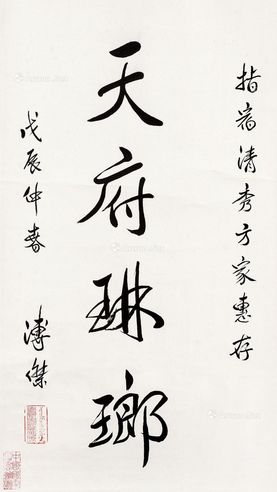 指宿清秀方家惠存
天府琳瑯
戊辰仲春
溥傑